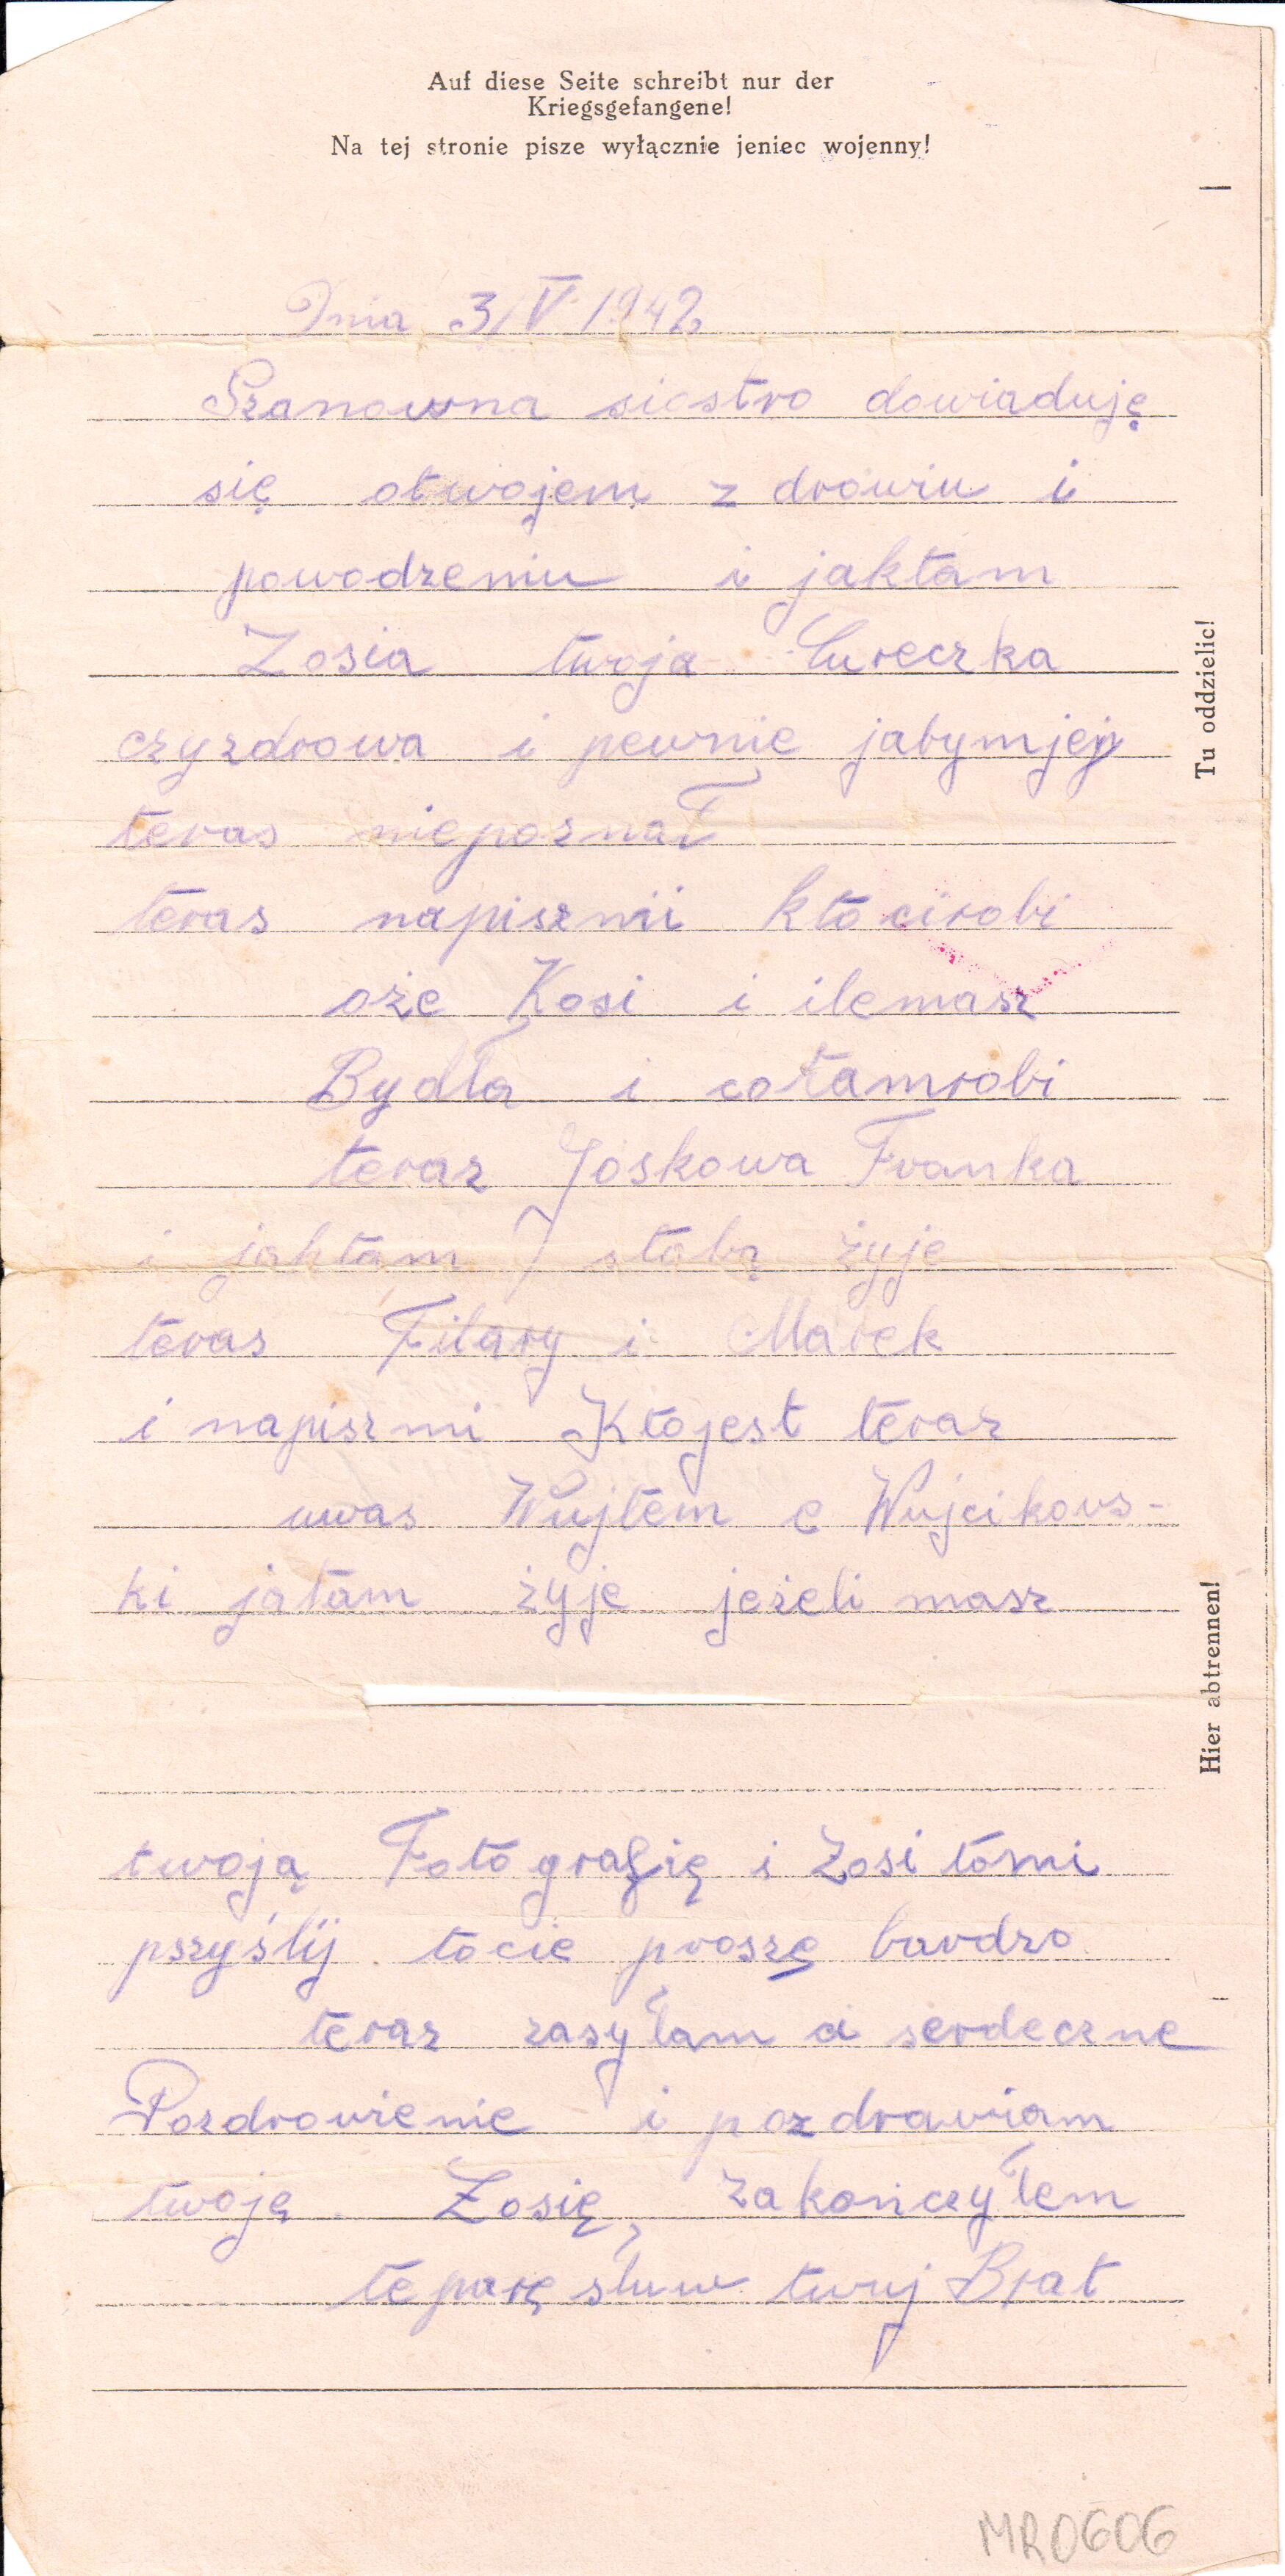 Auf diese Seite schreibt nur der
Kriegsgefangene!
Na tej stronie pisze wyłącznie jeniec wojenny!
Dnia 3/V 1942
Szanowna siostro dowiaduję
się otwojem z drowiu i
powodzeniu i jaktam
Zosia twoja Cureczka
czyzdrowa i pewnie jabymjej
teras niepoznał
teras napiszmi kto cirobi
oże Kosi i ilemasz
Bydła i cotamrobi
teraz Joskowa Franka
i jaktam stobą żyje
teras Filary i Marek
i napiszmi Ktojest teraz
uwas Wujtem e Wujcikows-
ki jatam żyje jeżeli masz
twoją Fotografię i Zosi tomi
pszyślij tocie proszę bardzo
teraz zasyłam ci serdeczne
Pozdrowienie i pozdrawiam
twoję Zosię, zakończyłem
te parę słuw twuj Brat
Tu oddzielic!
Hier abtrennen!
MR0606